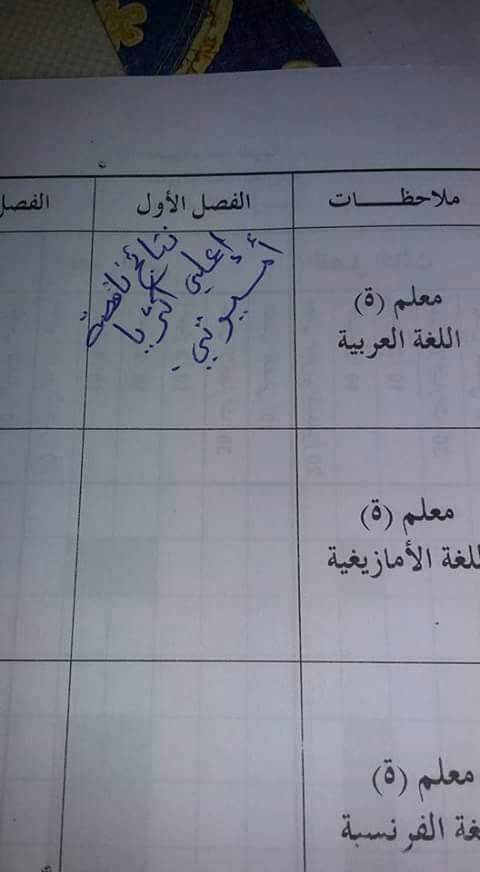 ملاحظات الفصل الأول الفصل
معلم (ة)
اللغة العربية
نتائج ناقصة
اعملي أكثر يا
معلم (ة)
للغة الأمازيغية
معلم (ة)
غة الفرنسية